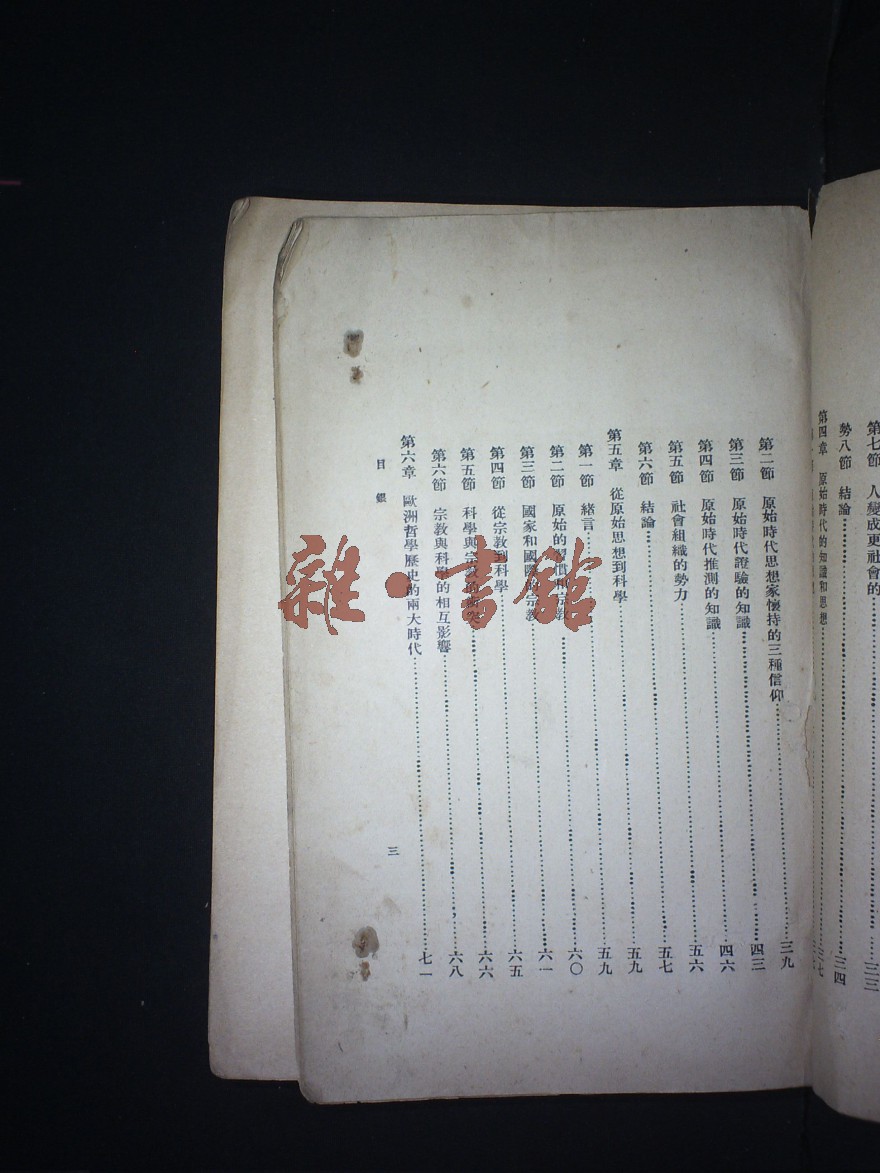 第七節 人變成更社會的……三三
勢八節 結論……三四
第四章 原始時代的知識和思想……三七
第二節 原始時代思想家懷持的三種信仰……三九
第三節 原始時代證驗的知識……四三
第四節 原始時代推測的知識……四六
第五節 社會組織的勢力……五六
第六節 結論……五七
第五章 從原始思想到科學……五九
第一節 緒言……五九
第二節 原始的習慣和宗教……六〇
第三節 國家和國際的宗教……六一
第四節 從宗教到科學……六五
第五節 科學與宗教的衝突……六六
第六節 宗教與科學的相互影響……六八
第六章 歐洲哲學歷史的兩大時代……七一
目 錄
三
雜·書館